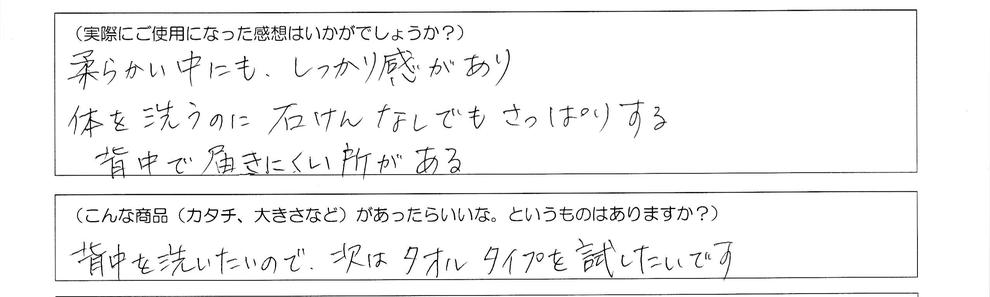 （実際にご使用になった感想はいかがでしょうか？）
柔らかい中にも、しっかり感があり
体を洗うのに石けんなしでもさっぱりする
背中で届きにくい所がある
（こんな商品（カタチ、大きさなど）があったらいいな。というものはありますか？）
背中を洗いたいので、次はタオルタイプを試したいです